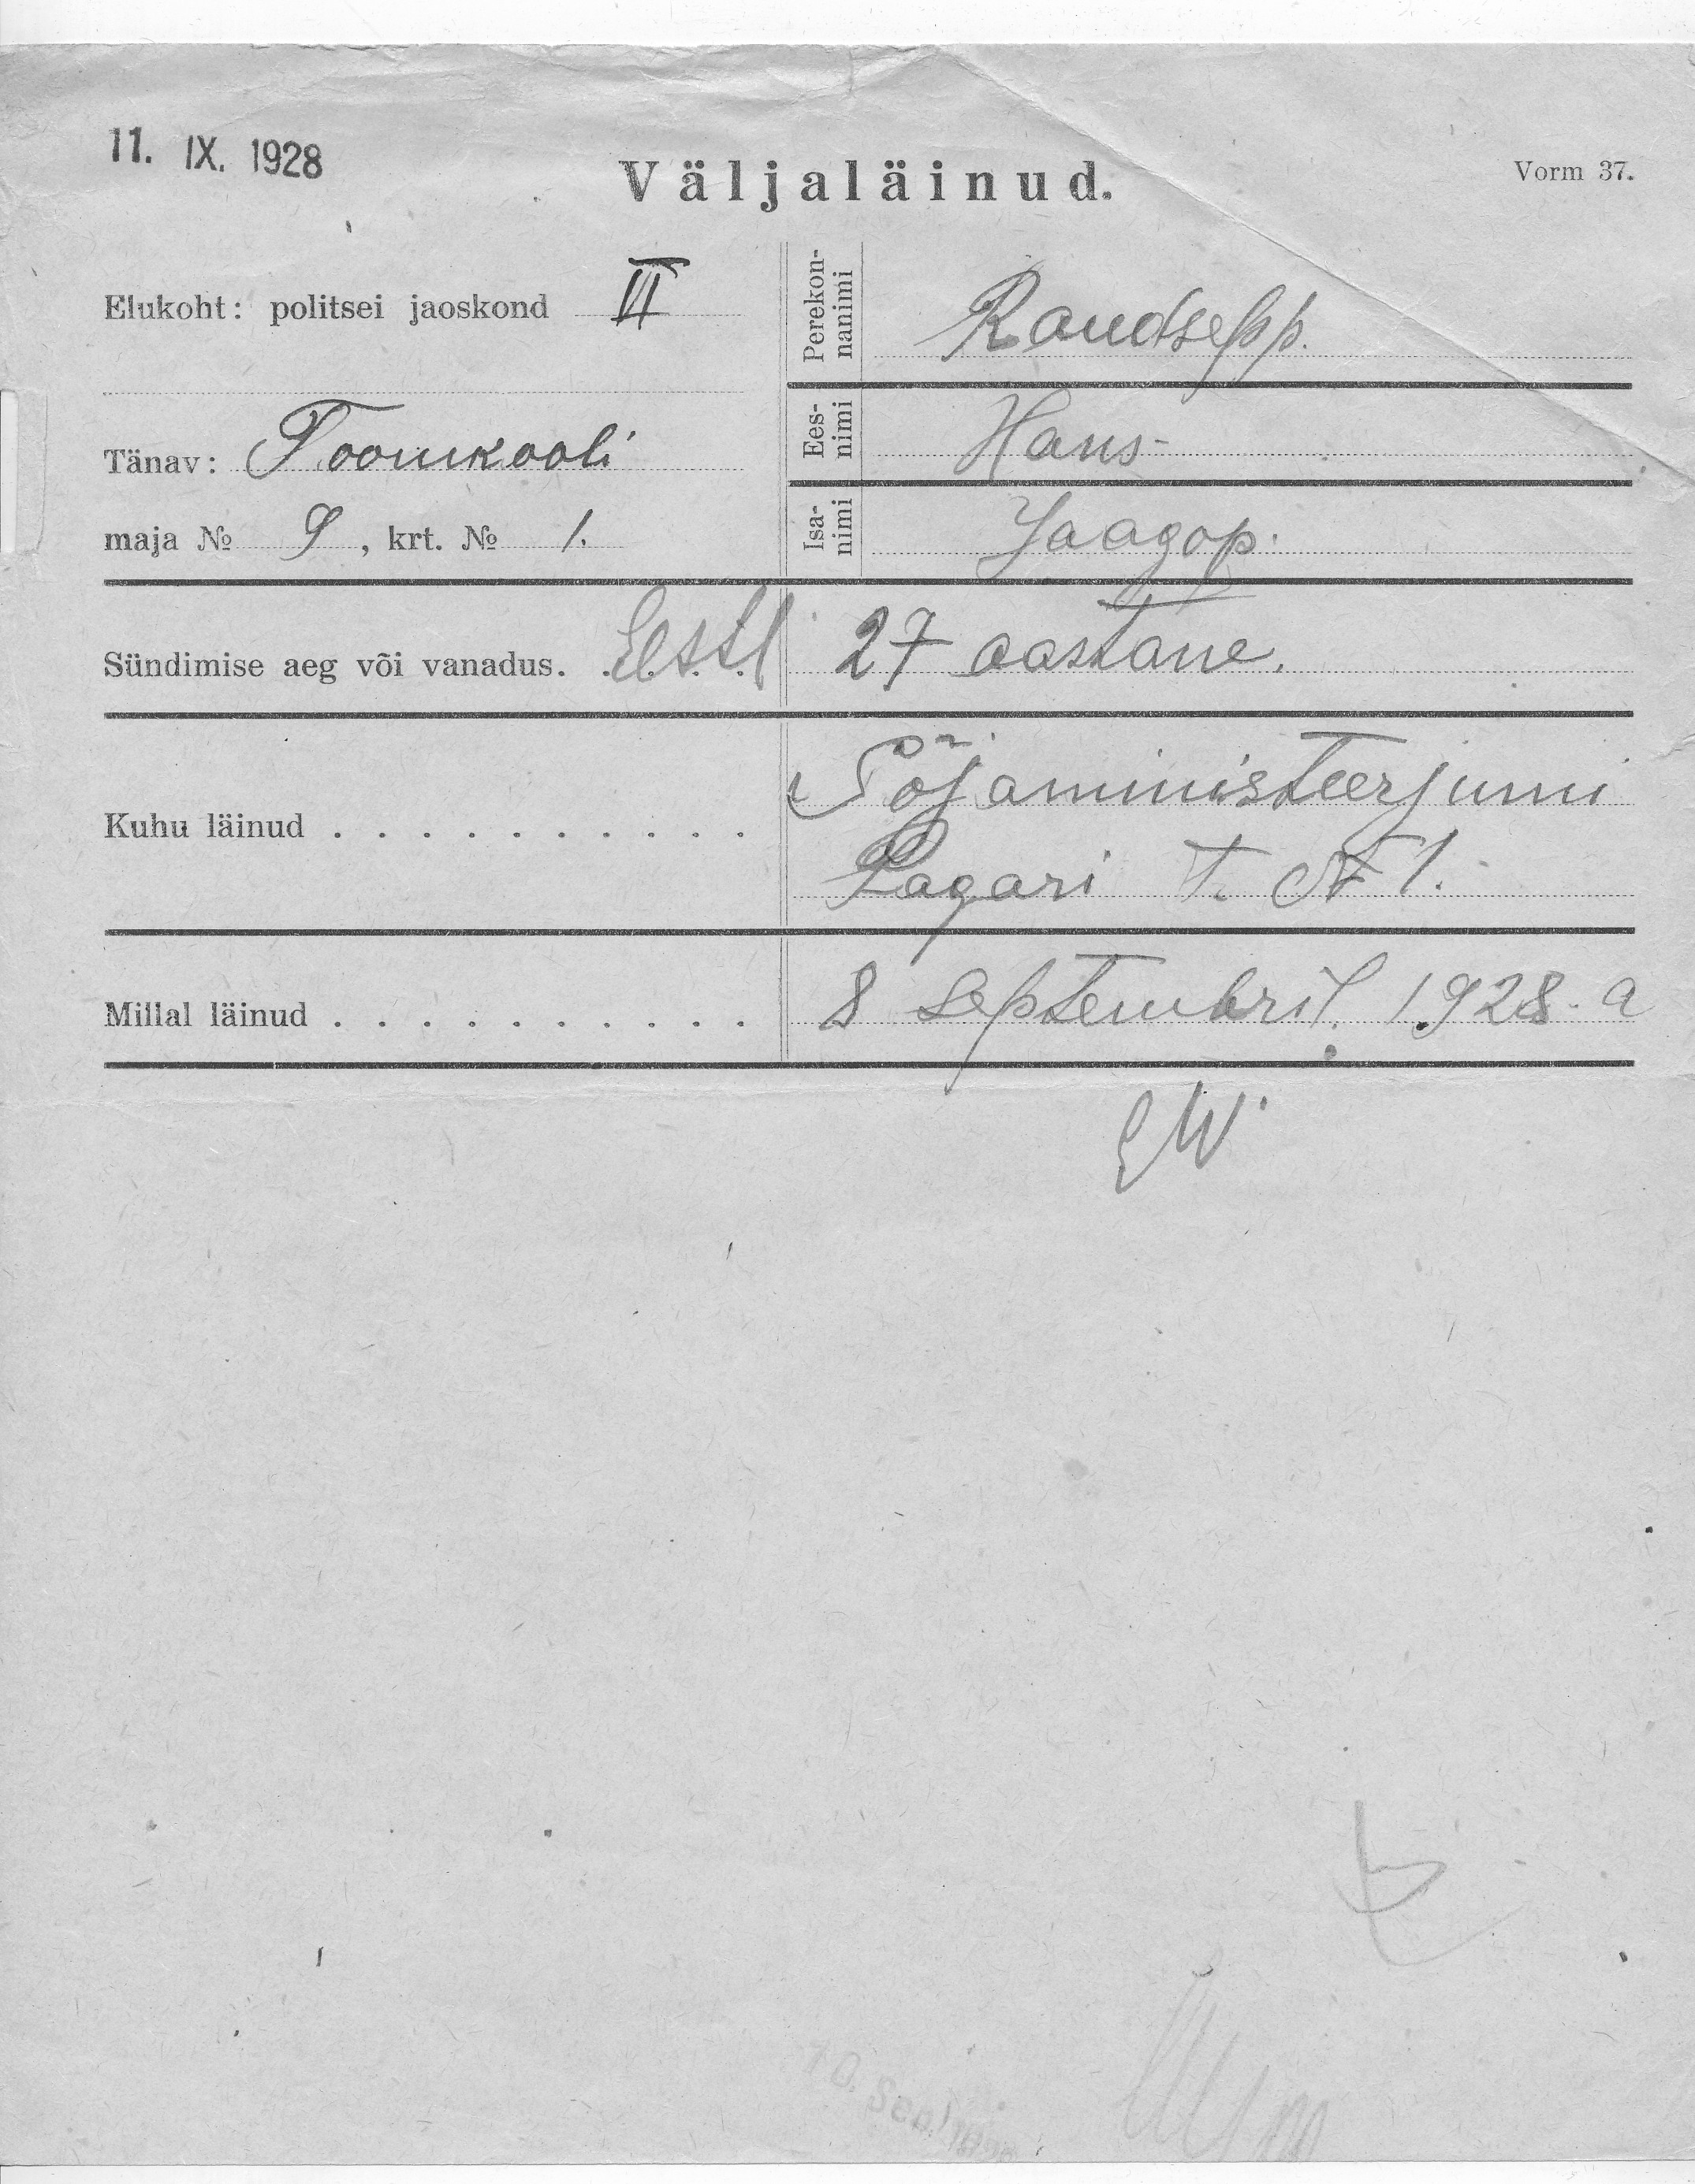 11. IX. 1928
Väljaläinud.
Vorm 37.
Elukoht: politsei jaoskond VI
Tänav: Toomkooli
maja № 9, krt. № 1.
Perekon-
nanimi
Raudsepp.
Ees-
nimi
Hans
Isa-
nimi
Jaagop.
Sündimise aeg või vanadus. Eesti 27 aastane.
Kuhu läinud . . . . . . . . . . Sõjaministeerjumi
Pagari T. № 1.
Millal läinud . . . . . . . . . . 8 septembril. 1928. a
EW.
10. Sept.